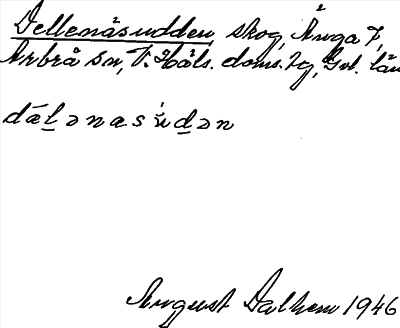 Dellenåsudden, skog, Ånga 7,
Arbrå sn, V. Häls. doms. Tg, Gvl. län
dæḷənasu̇ḍən
August Dalhem 1946